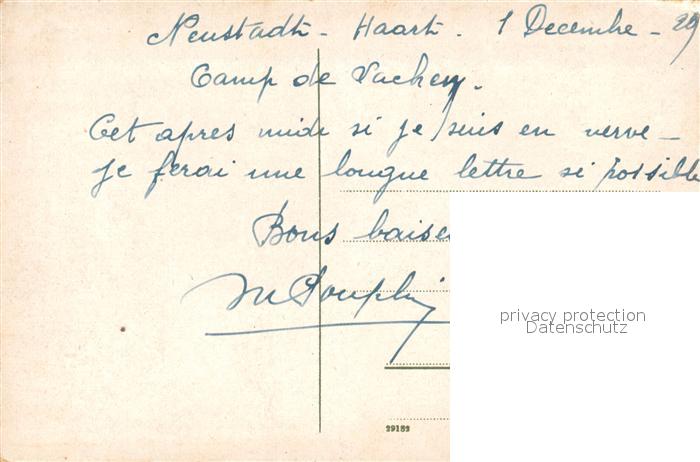 Neustadt - Haart. 1 Decembre - 29
Camp de Vachey.
Cet apres midi si je suis en verve -
je ferai une longue lettre si possible
Bons baise
privacy protection
Datenschutz
29152